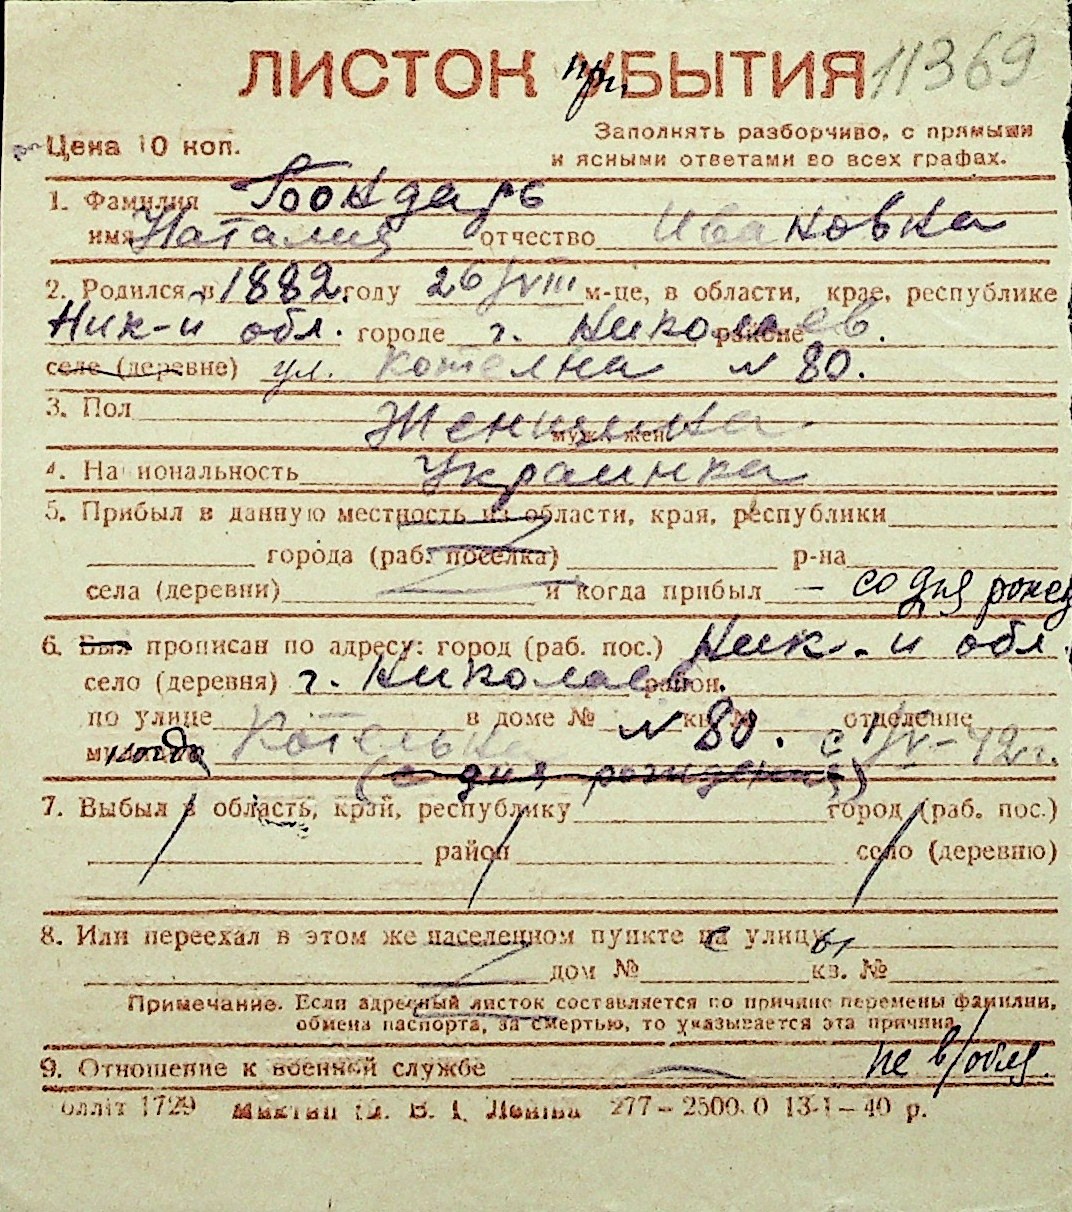 ЛИСТОК пр. УБЫТИЯ 11369
Цена 10 коп.
Заполнять разборчиво, с прямыми
и ясными ответами во всех графах.
1. Фамилия Бондарь
имя Наталия отчество Ивановна
2. Родился в 1882 году 26/VIII м-це, в области, крае, республике
Ник-й обл. городе г. Николаев. районе
селе (деревне) ул. Котелна N 80.
3. Пол Женщина.
муж. жен.
4. Национальность Украинка
5. Прибыл в данную местность из области, края, республики
города (раб. поселка) р-на
села (деревни) и когда прибыл - со дня рожд
6. Был прописан по адресу: город (раб. пос.) Ник.-и обл.
село (деревня) г. Николаев. район.
по улице Котельна в доме № N 80. кв. № отделение
когда с IV-42 г.
(с дня рождения)
7. Выбыл в область, край, республику город (раб. пос.)
район село (деревню)
8. Или переехал в этом же населенном пункте с улицы
дом № кв. №
Примечание. Если адресный листок составляется по причине перемены фамилии,
обмена паспорта, за смертью, то указывается эта причина
9. Отношение к военной службе не в/обяз.
олліт 1729 В. І. Леніна 277-2500.0 13-1-40 р.